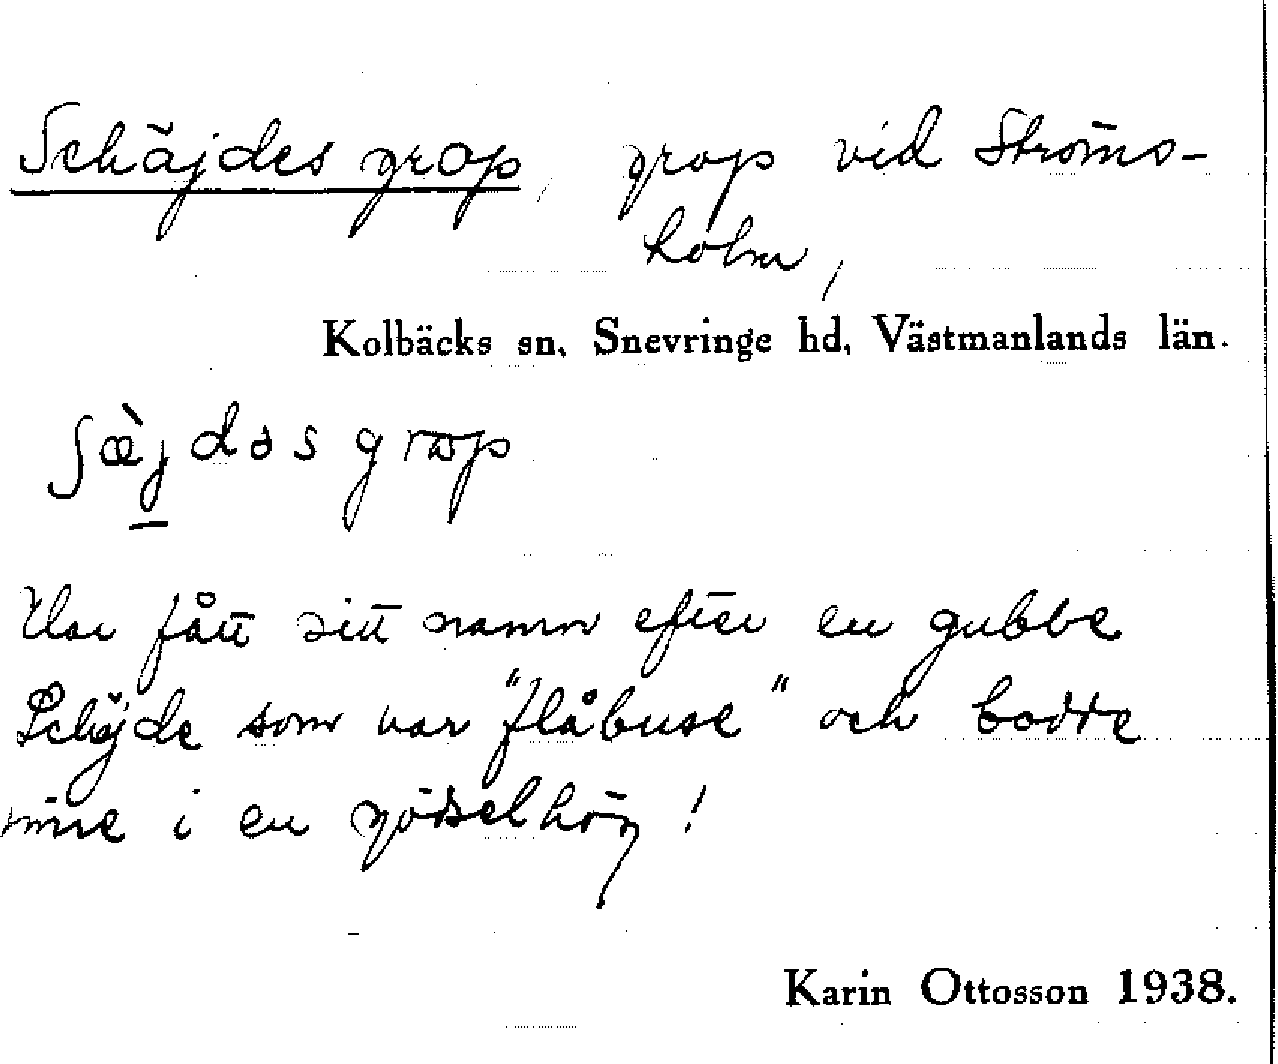 Schäjdes grop, grop vid Ströms-
holm,
Kolbäcks sn, Snevringe hd, Västmanlands län.
ʃæ̀jdəs grop
Har fått sitt namn efter en gubbe
Schöjde som var "flåbuse" och bodde
inne i en gödselhög!
Karin Ottosson 1938.